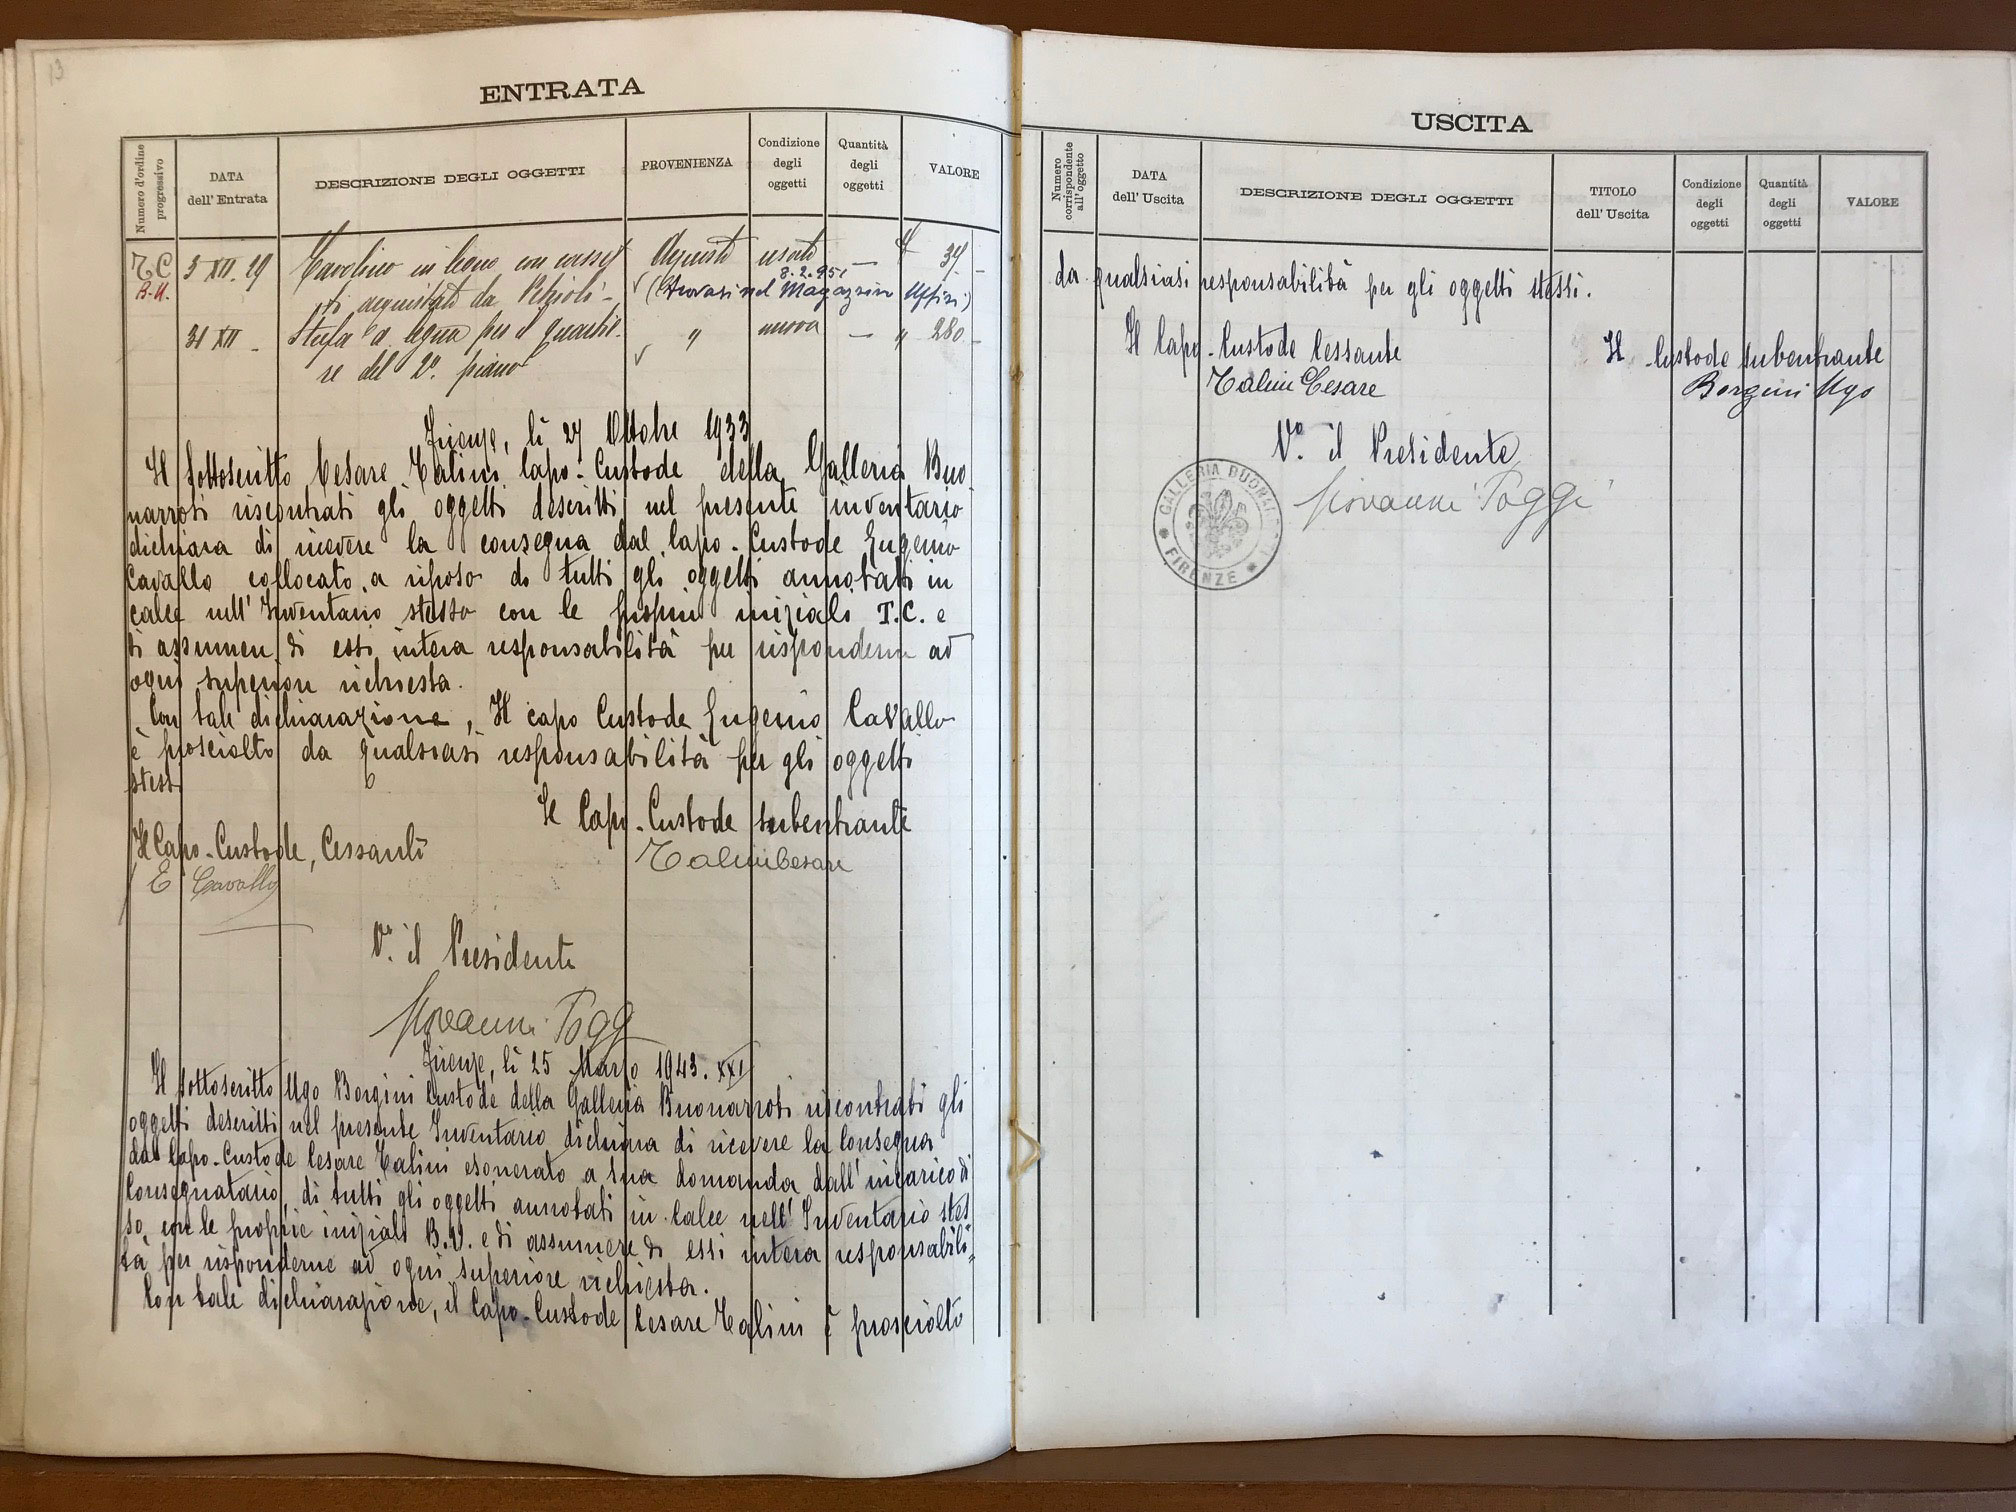 13
ENTRATA
Numero d'ordine progressivo
DATA dell' Entrata
DESCRIZIONE DEGLI OGGETTI
PROVENIENZA
Condizione degli oggetti
Quantità degli oggetti
VALORE
TC 3 XII. 29 Tavolino in legno con casset Acquisto usato — £ 34 -
B.U. ti acquistato da 8.2.951 (trovasi nel Magazzino Uffizi)
31 XII - Stufa a legna per il quartie- " nuova — " 280 -
re del 2º. piano
Firenze, lì 27 Ottobre 1933
Il sottoscritto Cesare Talini Capo-Custode della Galleria Buo
narroti riscontrati gli oggetti descritti nel presente inventario
dichiara di ricevere la consegna dal Capo-Custode Eugenio
Cavallo collocato a riposo di tutti gli oggetti annotati in
calce nell'Inventario stesso con le proprie iniziali T.C. e
di assumere di essi intera responsabilità per risponderne ad
ogni superiore richiesta.
Con tale dichiarazione, Il capo Custode Eugenio Cavallo
è prosciolto da qualsiasi responsabilità per gli oggetti
stessi
Il Capo-Custode subentrante
Il Capo-Custode, Cessante
Talini Cesare
E Cavallo
Vº. il Presidente
Giovanni Poggi
Firenze, lì 25 Marzo 1943. XXI
Il sottoscritto Ugo Borgini Custode della Galleria Buonarroti riscontrati gli
oggetti descritti nel presente Inventario dichiara di ricevere la Consegna
dal Capo-Custode Cesare Talini esonerato a sua domanda dall'incarico di
Consegnatario, di tutti gli oggetti annotati in calce nell'Inventario stes
so con le proprie iniziali B.U. e di assumere di essi intera responsabili=
tà per risponderne ad ogni superiore richiesta.
Con tale dichiarazione, il Capo-Custode Cesare Talini è prosciolto
USCITA
Numero corrispondente all' oggetto
DATA dell' Uscita
DESCRIZIONE DEGLI OGGETTI
TITOLO dell' Uscita
Condizione degli oggetti
Quantità degli oggetti
VALORE
da qualsiasi responsabilità per gli oggetti stessi.
Il Capo-Custode Cessante
Il Custode subentrante
Talini Cesare
Borgini Ugo
Vº. il Presidente
Giovanni Poggi
GALLERIA BUONARROTI
* FIRENZE *